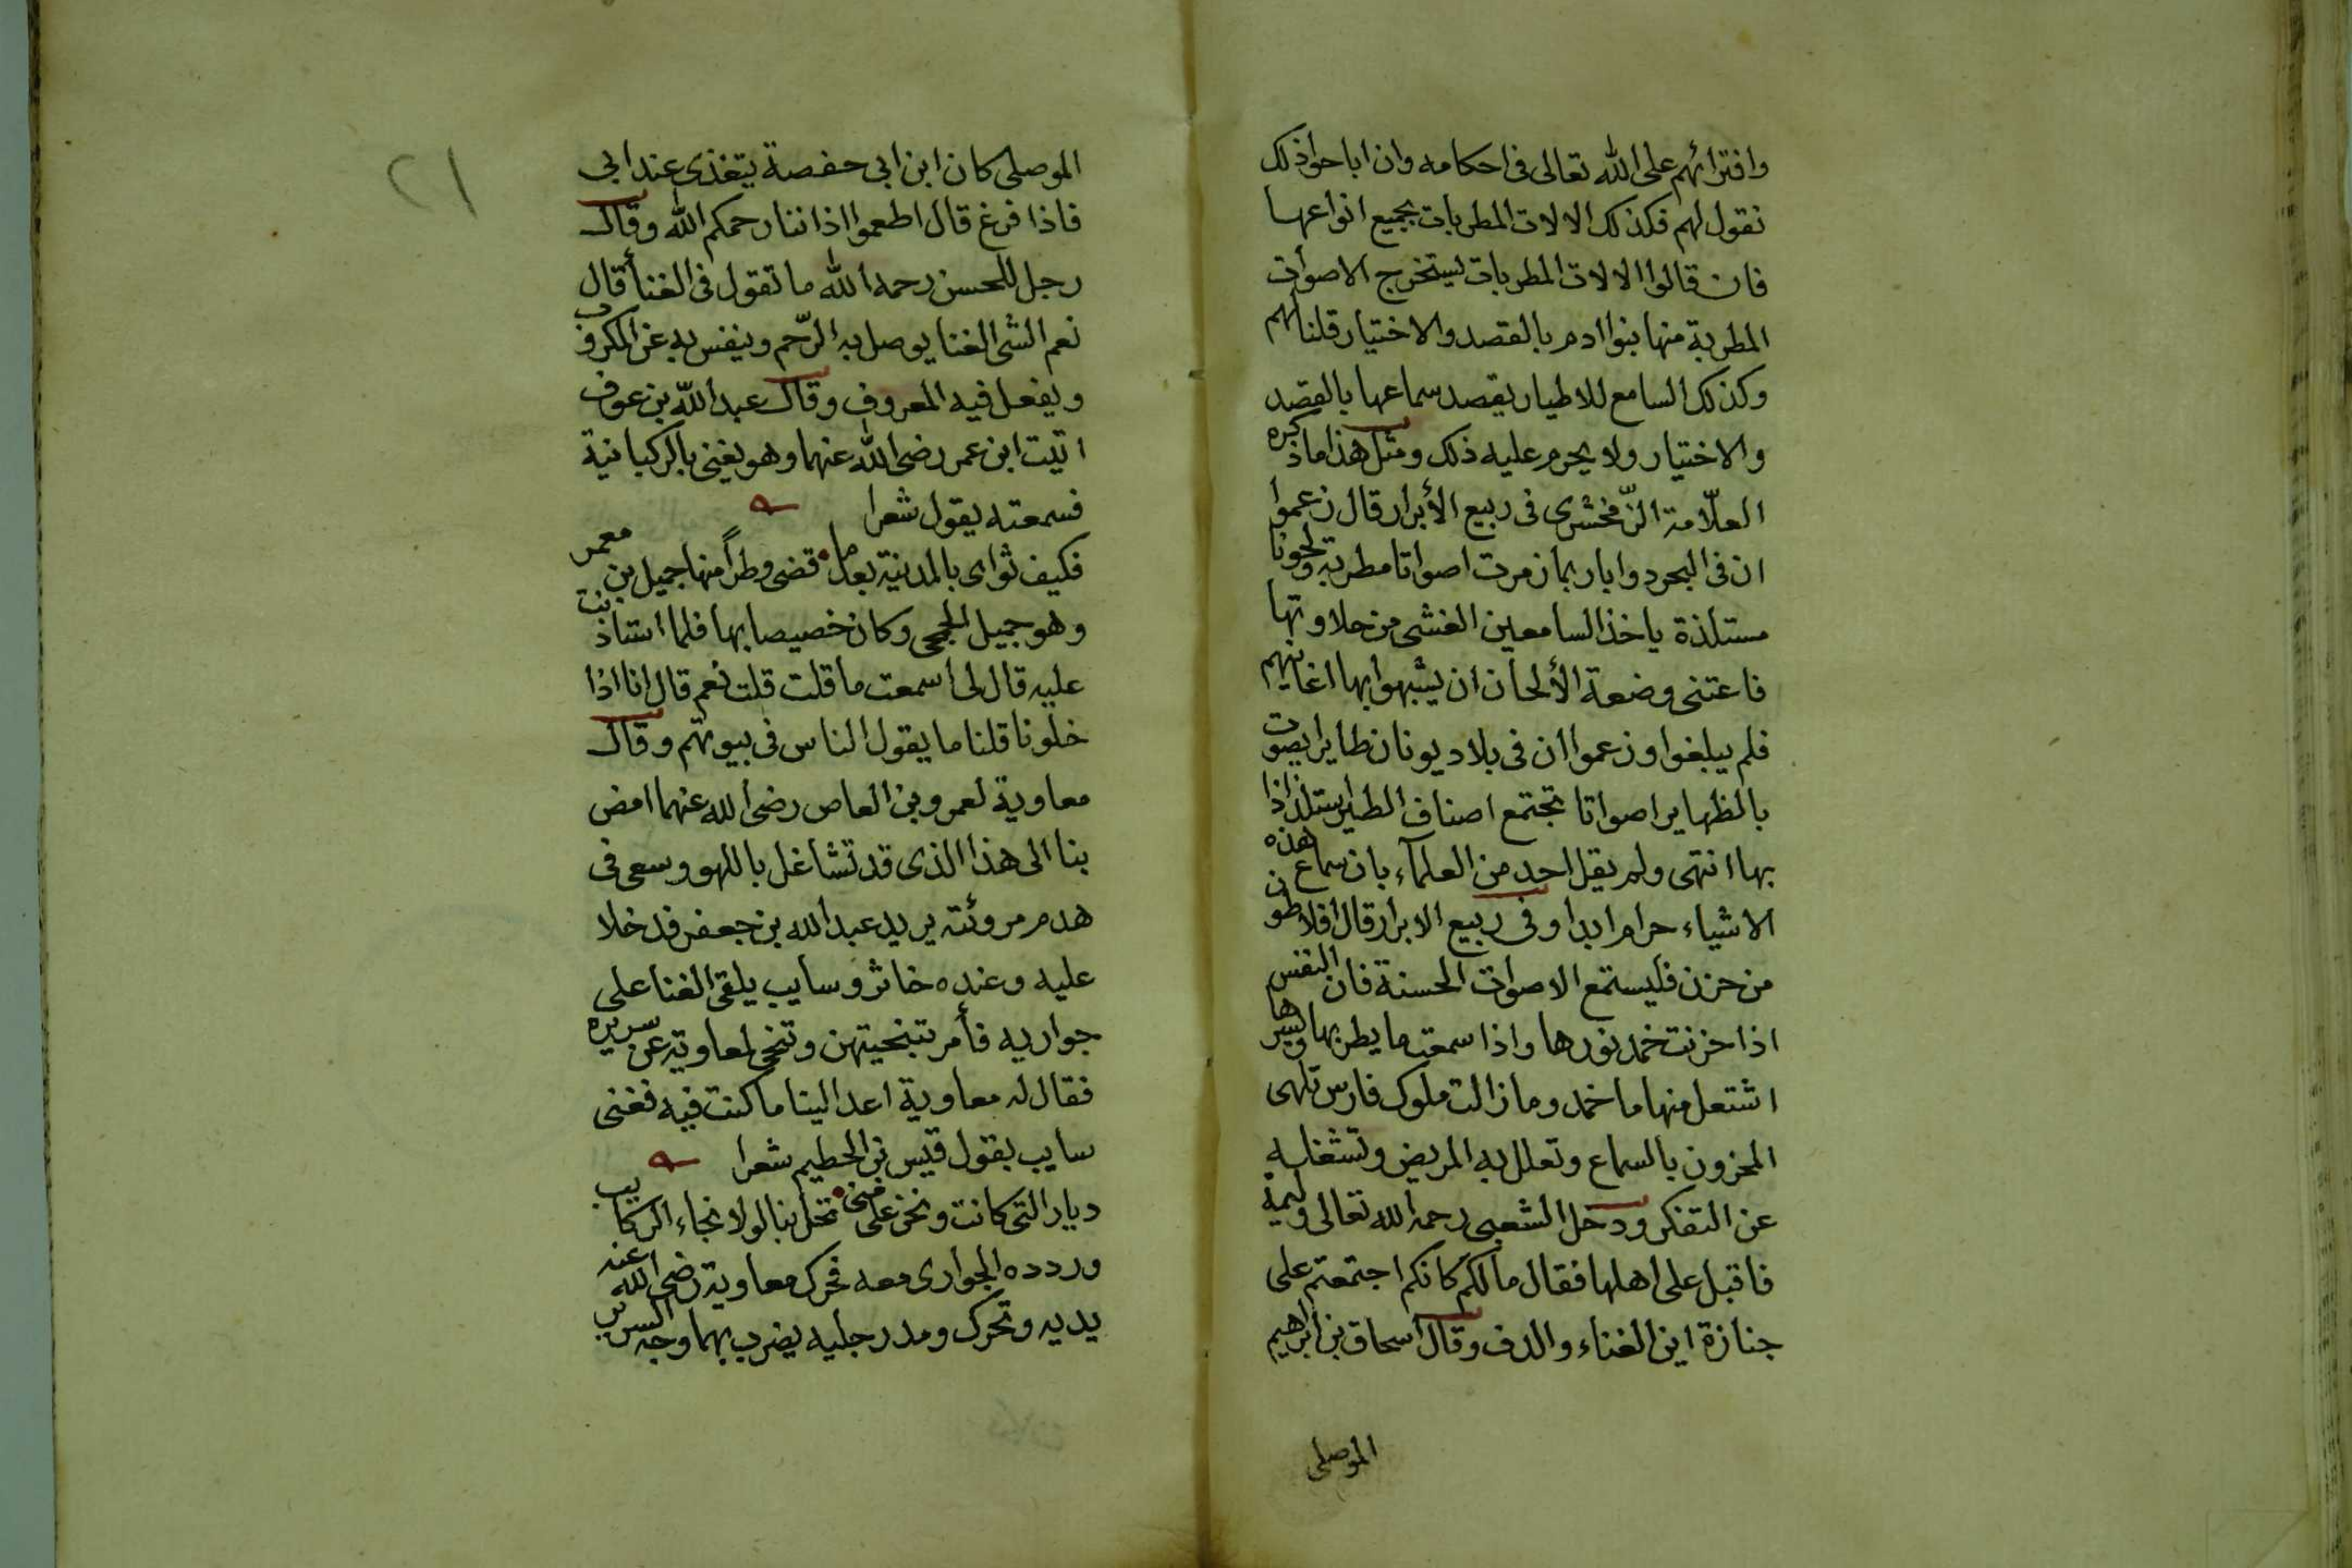 وافترائهم على الله تعالى فى احكامه وان اباحوا ذلك
نقول لهم فكذلك الالات المطربات بجميع انواعها
فان قالوا الالات المطربات يستخرج الاصوات
المطربة منها بنوا ادم بالقصد والاختيار قلنا لهم
وكذلك السامع للاطيار يقصد سماعها بالقصد
والاختيار ولا يحرم عليه ذلك ومثل هذا ما ذكره
العلّامة الزّمخشرى فى ربيع الأبرار قال زعموا
ان فى البحر دوابا ربما زمرت اصواتا مطربة ولحونا
مستلذة ياخذ السامعين الغشى من حلاوتها
فاعتنى وضعة الألحان ان يشبهوا بها اغانيهم
فلم يبلغوا وزعموا ان فى بلاد يونان طايرا يصوت
بالظهاير اصواتا تجتمع اصناف الطير استلذاذا
بها انتهى ولم يقل احد من العلمآء بان سماع هذه
الاشياء حرام ابدا وفى ربيع الابرار قال افلاطون
من حزن فليستمع الاصوات الحسنة فان النفس
اذا حزنت خمد نورها واذا سمعت ما يطربها ويسرها
اشتعل منها ما خمد وما زالت ملوك فارس تلهى
المحزون بالسماع وتعلل به المريض وتشغله
عن التفكر ودخل الشعبى رحمه الله تعالى وليمة
فاقبل على اهلها فقال مالكم كانكم اجتمعتم على
جنازة اين الغناء والدف وقال اسحاق بن ابراهيم
الموصلى
٢١
الموصلى كان ابن ابى حفصة يتغذى عند ابى
فاذا فرغ قال اطعموا اذاننا رحمكم الله وقال
رجل للحسن رحمه الله ما تقول فى الغنأ قال
نعم الشى الغنا يوصل به الرّحم وينفس به عن المكروب
ويفعل فيه المعروف وقال عبد الله بن عوف
اتيت ابن عمر رضى الله عنهما وهو يغنى بالركبانية
فسمعته يقول شعرا
فكيف ثواى بالمدينة بعد ما قضى وطراً منها جميل بن معمر
وهو جميل الجمحى وكان خصيصا بها فلما استاذنت
عليه قال لى أسمعت ما قلت قلت نعم قال انا اذا
خلونا قلنا ما يقول الناس فى بيوتهم وقال
معاوية لعمرو بن العاص رضى الله عنهما امض
بنا الى هذا الذى قد تشاغل باللهو وسعى فى
هدم مروئته يريد عبد الله بن جعفر فدخلا
عليه وعنده خاثر وسايب يلقى الغنا على
جواريه فأمر بتنحيتهن وتنحى لمعاوية عن سريره
فقال له معاوية اعد الينا ما كنت فيه فغنى
سايب بقول قيس بن الحطيم شعرا
ديار التى كانت ونحن على منى تحل بنا لولا نجاء الركايب
وردده الجوارى معه فحرك معاوية رضى الله عنه
يديه وتحرك ومد رجليه يضرب بهما وجه السرير